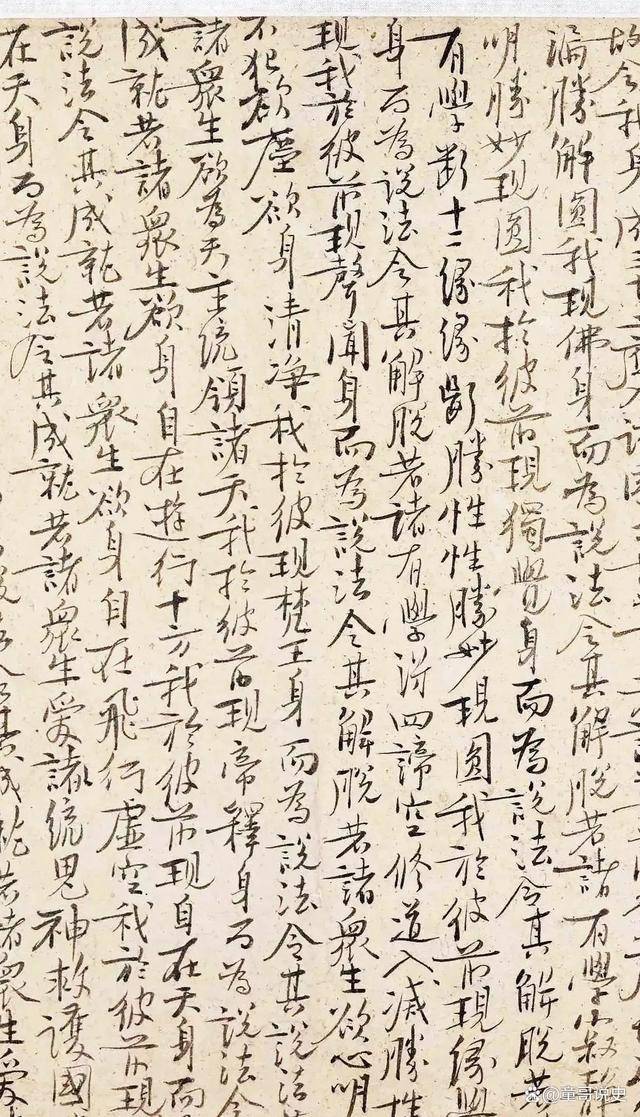 故令我身成三十二應入諸國
漏勝解圓我現佛身而為說法令其解脫若諸有學寂靜
明勝妙現圓我於彼前現獨覺身而為說法令其解脫若
有學斷十二緣緣斷勝性性勝妙現圓我於彼前現緣覺
身而為說法令其解脫若諸有學得四諦空修道入滅勝性
現我於彼前現聲聞身而為說法令其解脫若諸眾生欲心明
不犯欲塵欲身清淨我於彼現梵王身而為說法令其說法
諸眾生欲為天主統領諸天我於彼前現帝釋身而為說法令
成就若諸眾生欲身自在遊行十方我於彼前現身在天身而
說法令其成就若諸眾生欲身自在飛行虛空我於彼前現
在天身而為說法令其成就若諸眾生愛諸統鬼神救護國
其成就若諸眾生愛
童哥说史